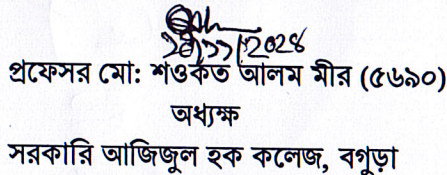 ২৪/১১/২০২৪
প্রফেসর মো: শওকত আলম মীর (৫৬৯০)
অধ্যক্ষ
সরকারি আজিজুল হক কলেজ, বগুড়া